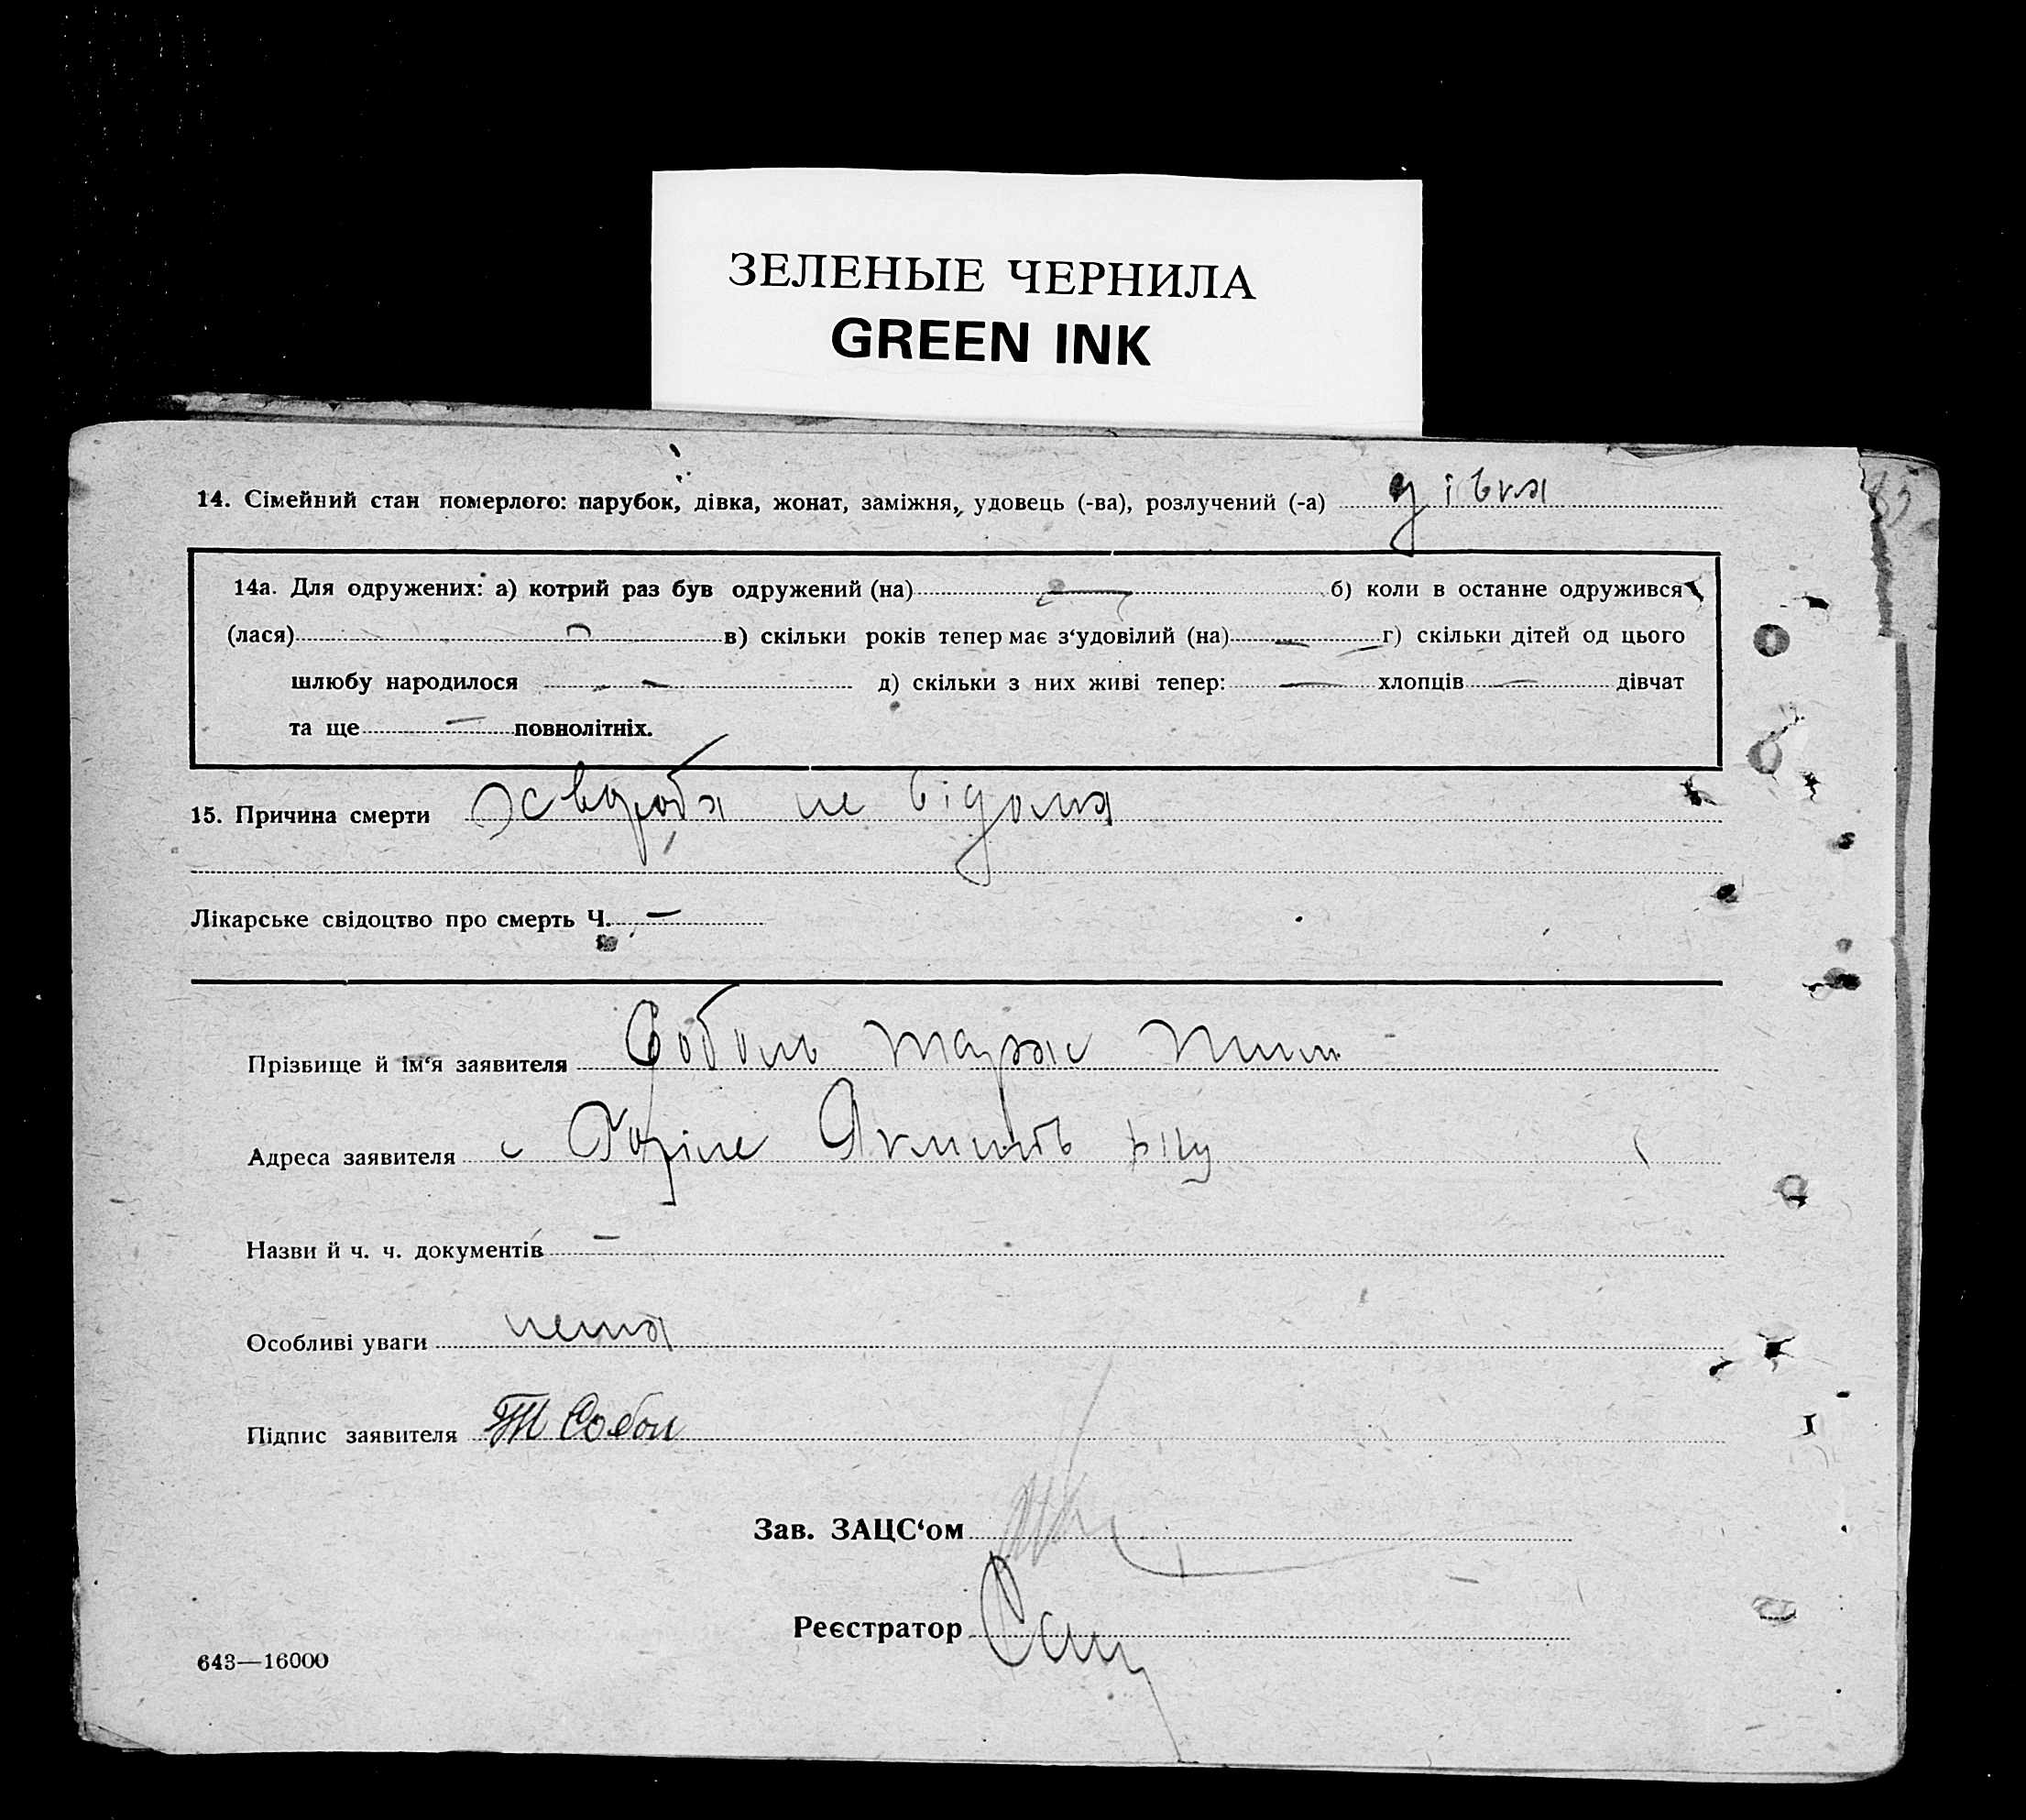 ЗЕЛЕНЫЕ ЧЕРНИЛА
GREEN INK
14. Сімейний стан померлого: парубок, дівка, жонат, заміжня, удовець (-ва), розлучений (-а) дівка
14а. Для одружених: а) котрий раз був одружений (на) — б) коли в останнє одружився
(лася) — в) скільки років тепер має з‘удовілий (на) — г) скільки дітей од цього
шлюбу народилося — д) скільки з них живі тепер: — хлопців — дівчат
та ще — повнолітніх.
15. Причина смерти хвороба не відома
Лікарське свідоцтво про смерть Ч. —
Прізвище й ім‘я заявителя Соболь Тарас Тим
Адреса заявителя с
Назви й ч. ч. документів —
Особливі уваги нема
Підпис заявителя Т Собол
Зав. ЗАЦС‘ом
Реєстратор
643—16000